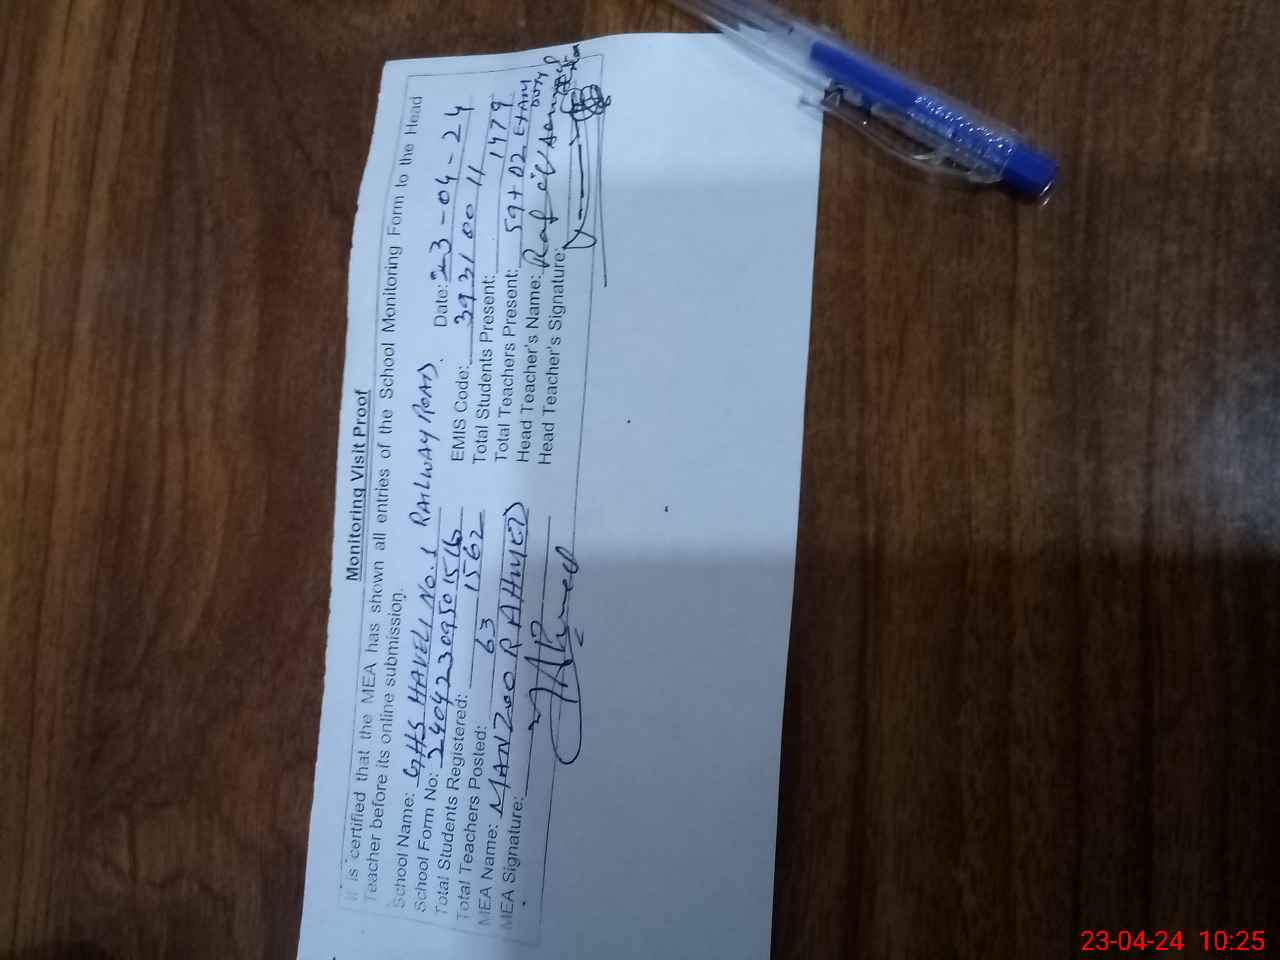 Monitoring Visit Proof
It is certified that the MEA has shown all entries of the School Monitoring Form to the Head
Teacher before its online submission.
School Name: GHS HAVELI No. 1 RAILWAY ROAD. Date: 23-04-24
School Form No: 24042309501516 EMIS Code: 39310011
Total Students Registered: 1562 Total Students Present: 1479
Total Teachers Posted: 63 Total Teachers Present: 59+02 EXAM DUTY
MEA Name: MANZOOR AHMED Head Teacher's Name:
MEA Signature: Head Teacher's Signature:
23-04-24 10:25